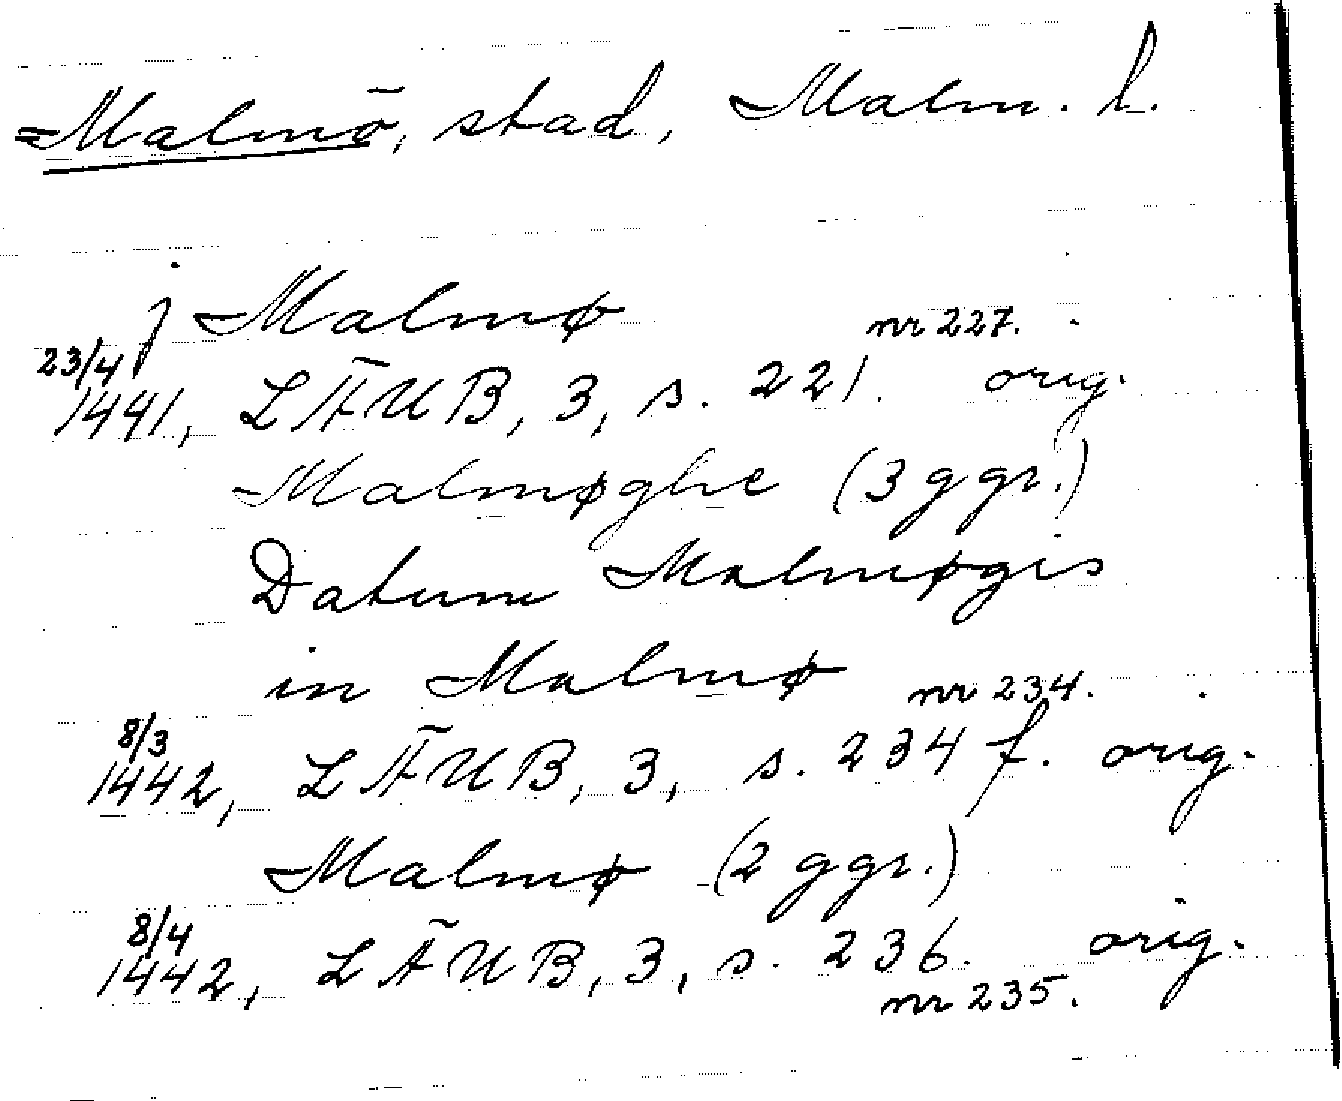 Malmö, stad, Malm. l.
j Malmø nr 227.
23/4 1441, LÄUB, 3, s. 221. orig.
Malmøghe (3 ggr.)
Datum Malmøgis
in Malmø nr 234.
8/3 1442, LÄUB, 3, s. 234 f. orig.
Malmø (2 ggr.)
8/4 1442, LÄUB, 3, s. 236. orig.
nr 235.